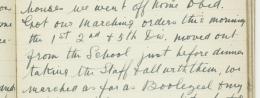 houses we went off home & bed.
Got our marching orders this morning
the 1st 2nd & 5th Divs. moved out
from the School just before dinner
taking the Staff & all with them, we
marched as far as